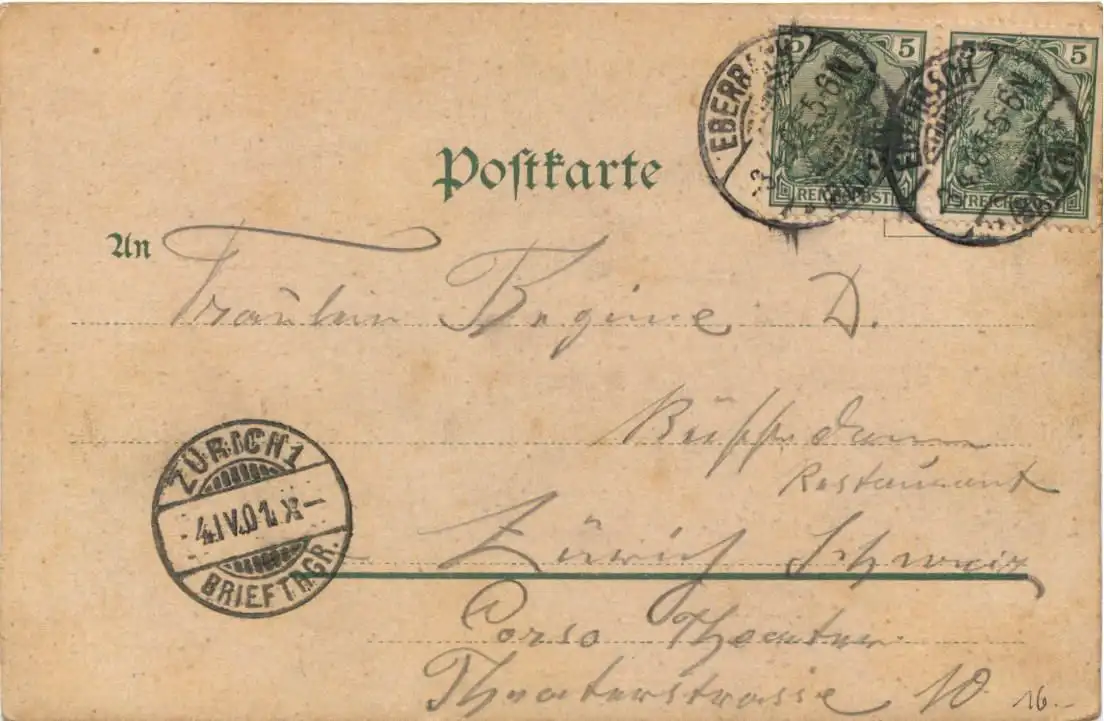 5 5
EBERBACH
5-6N
EBERBACH
5-6N
REICHSPOST
REICHSPOST
Postkarte
An
Fräulein Regine D.
Büffetdame
Restaurant
Zürich Schweiz
Corso Theater
Theaterstrasse 10
16.-
ZÜRICH 1
-4.IV.01.X-
BRIEFTRGR.